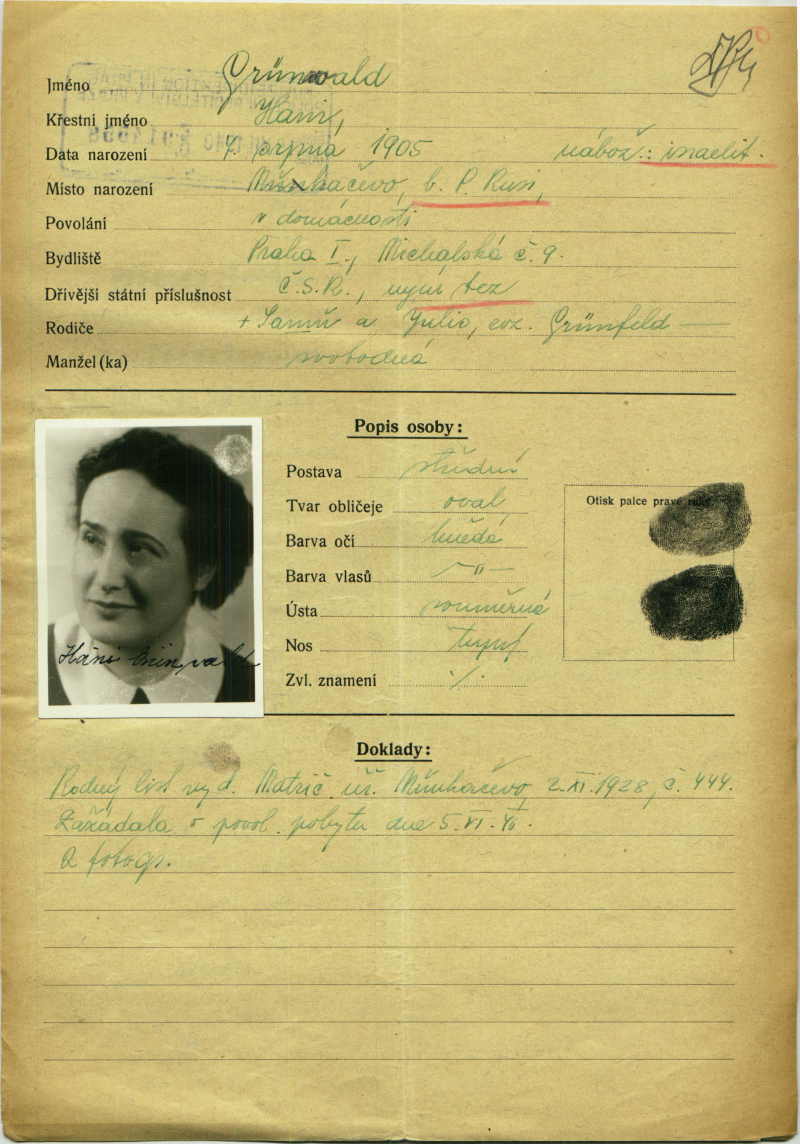 Jméno Grünwald
Křestní jméno Hani,
Data narození 7. srpna 1905 nábož.: israelit.
Místo narození Munkačevo, b. P. Rusi,
Povolání v domácnosti
Bydliště Praha I., Michalská č. 9.
Dřívější státní příslušnost Č.S.R., nyní bez
Rodiče + Samu a Julie, roz. Grünfeld —
Manžel(ka) svobodná
Popis osoby:
Postava střední
Tvar obličeje oval,
Barva očí hnědá
Barva vlasů —"—
Ústa souměrná
Nos tupý
Zvl. znamení ·/·
Otisk palce pravé ruky
Háni Grünwald
Doklady:
Rodný list vyd. Matrič. úř. Munkačevo, 2. XI. 1928, č. 444.
Zažádala o povol. pobytu dne 5. VI. 40.
2 fotogr.